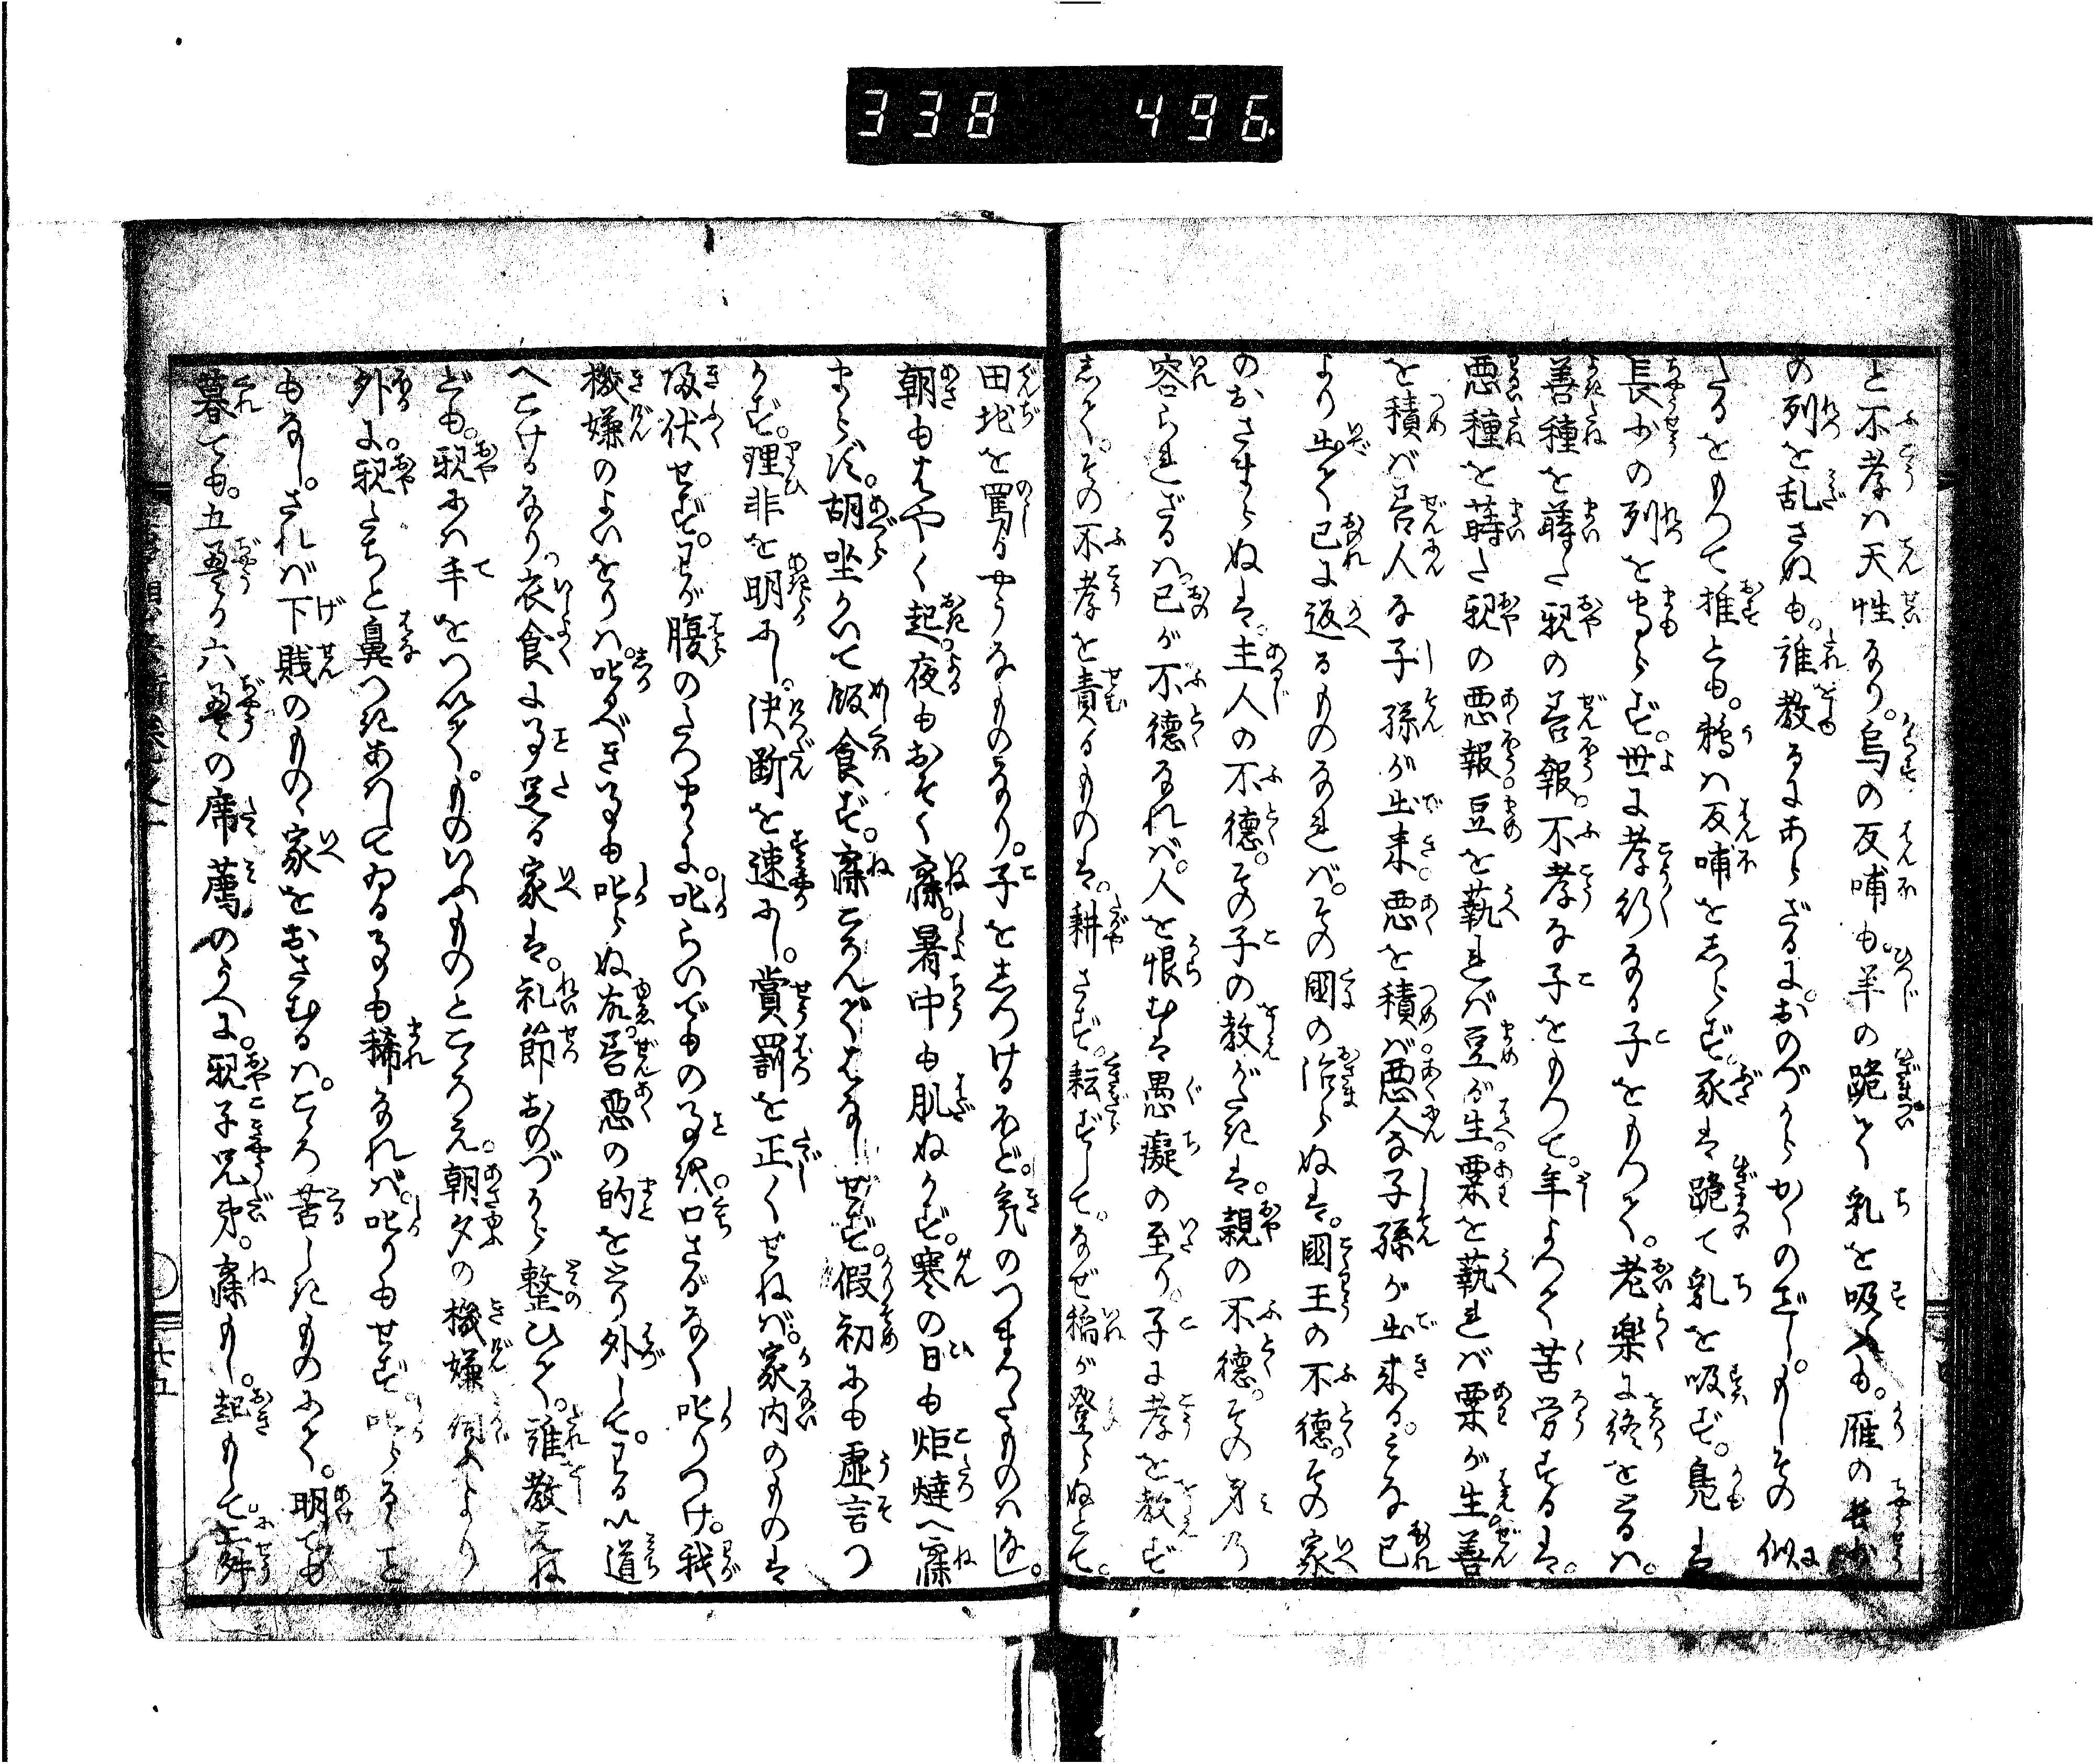 338 496.
と不孝は天性なり。烏の反哺も。羊の跪て乳を吸ふも。雁の長少
の列を乱さぬも。誰教るにあらざるに。おのづからかくのごし。もしその似
たるをもつて推とも。鴉は反哺をしらず。豕は跪て乳を吸ず。鳧は
長少の列を守らず。世に孝行なる子をもつて。老楽に終をとるは。
善種を蒔た親の善報。不孝な子をもつて。年よつて苦労するは。
悪種を蒔た親の悪報。豆を蓺れば豆が生。粟を蓺れば粟が生。善
を積ば善人な子孫が出来。悪を積ば悪人な子孫が出来る。みな己
より出て己に返るものなれば。その國の治らぬは。國王の不徳。その家
のおさまらぬは。主人の不徳。その子の教がたきは。親の不徳。その身の
容られざるは己が不徳なれば。人を恨むは愚癡の至り。子に孝を教ず
して。その不孝を責るものは。耕さず。耘ずして。なぜ稲が登らぬとて。
田地を罵るやうなものなり。子をしつけるほど。気のつまつたものはなし。
朝もはやく起。夜もおそく寐。暑中も肌ぬがず。寒の日も炬燵へ寐
まらず。胡坐かいて飯食ず。寐ころんではなしせず。假初にも虚言つ
かず。理非を明にし。決断を速にし。賞罰を正しくせねば。家内のものは
帰伏せず。わが腹のたつまゝに。叱らいでもの事を。口さがなく叱りつけ。我
機嫌のよいをりは。叱るべき事も叱らぬ故。善悪の的をとり外して。わるい道
へこけるなり。衣食に事足る家は。礼節おのづから整ひて。誰教えね
ども。親には手をつひて。ものいふものとこゝろえ。朝夕の機嫌伺ふより
外に。親たちと鼻つきあはしてゐる事も稀なれば。叱りもせず。叱らるゝこと
もなし。されば下賎のものゝ家をおさむるは。こゝろ苦しきものにて。明ても
暮ても。五畳か六畳の席薦のうへに。親子兄弟。寐もし。起もして二六時
七五